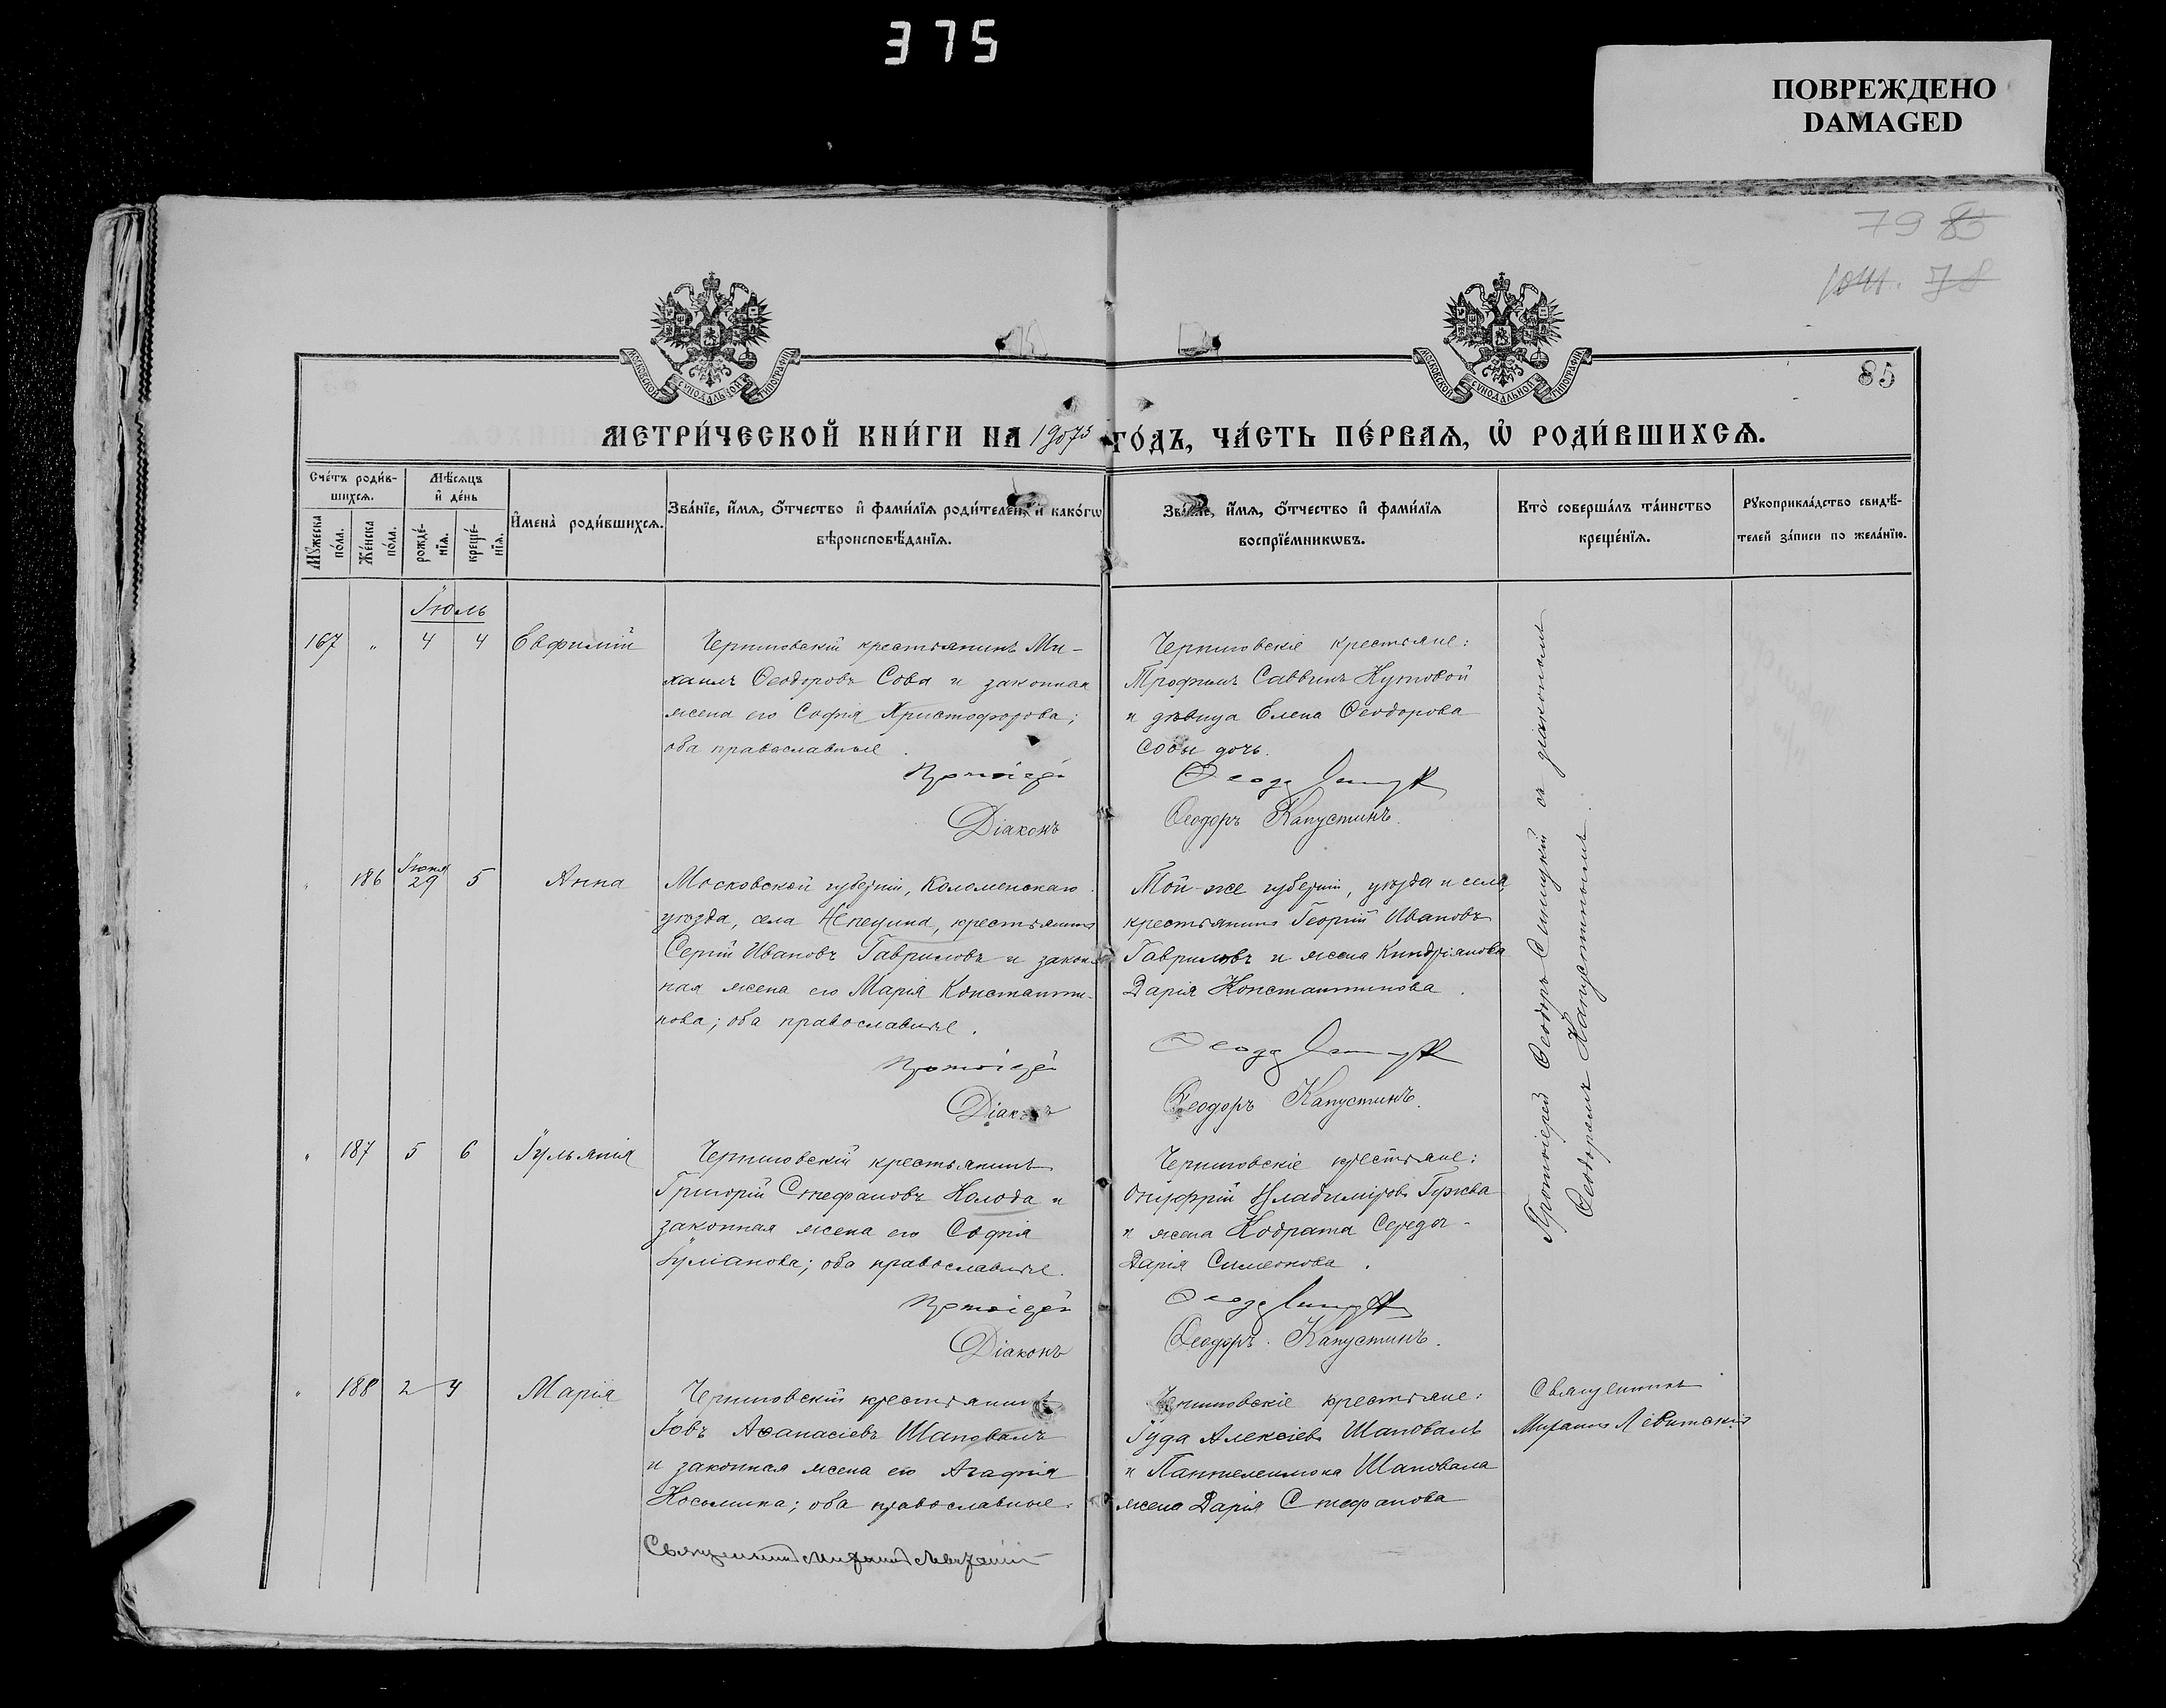 375
ПОВРЕЖДЕНО
DAMAGED
79
78
85
МОСКОВСКОЙ СѴНОДАЛЬНОЙ ТИПОГРАФІИ
МОСКОВСКОЙ СѴНОДАЛЬНОЙ ТИПОГРАФІИ
МЕТРИ́ЧЕСКОЙ КНИ́ГИ НА 1907й ГО́ДЪ, ЧА́СТЬ ПЕ́РВАѦ, Ѡ҆ РОДИ́ВШИХСѦ.
Сче́тъ роди́в-
шихсѧ.
Мѣ́сѧцъ
и҆ де́нь
Мꙋ́жеска по́ла.
Же́нска по́ла.
рожде́-нїѧ.
креще́-нїѧ.
И҆мена̀ роди́вшихсѧ.
Зва́нїе, и҆́мѧ, ѻ҆́тчество и҆ фами́лїѧ роди́телей, и҆ како́гѡ
вѣроисповѣ́данїѧ.
Зва́нїе, и҆́мѧ, ѻ҆́тчество и҆ фами́лїѧ
воспрїе́мникѡвъ.
Кто̀ соверша́лъ та́инство
креще́нїѧ.
Рꙋкоприкла́дство свидѣ́-
телей за́писи по жела́нїю.
Іюль
167 " 4 4 Евфимій
Черниговскій крестьянинъ Ми-
хаилъ Ѳеодоровъ Сова и законная
жена его Софія Христофорова;
оба православные.
Протоіерей
Діаконъ
Черниговскіе крестьяне:
Трофимъ Саввинъ Кутовой
и дѣвица Елена Ѳеодорова
Совы дочь.
Ѳеодоръ Капустинъ.
" 186 Іюня 29 5 Анна
Московской губерніи, Коломенскаго
уѣзда, села Непецина, крестьянинъ
Сергій Ивановъ Гавриловъ и закон-
ная жена его Марія Константи-
нова; оба православные.
Протоіерей
Діаконъ
Той-же губерніи, уѣзда и села
крестьянинъ Георгій Ивановъ
Гавриловъ и жена Кипріанова
Дарія Константинова.
Ѳеодоръ Капустинъ.
" 187 5 6 Іульянія
Черниговскій крестьянинъ
Григорій Стефановъ Колода и
законная жена его Софія
Іуліанова; оба православные.
Протоіерей
Діаконъ
Черниговскіе крестьяне:
Онуфрій Владиміровъ
и жена Кодрата Середы -
Дарія Симеонова.
Ѳеодоръ Капустинъ.
" 188 2 4 Марія
Черниговскій крестьянинъ
Іовъ Аѳанасіевъ Шаповалъ
и законная жена его Агафія
Косьмина; оба православные.
Священникъ Михаилъ Левитскій
Черниговскіе крестьяне:
Іуда Алексіевъ Шаповалъ
и Пантелеимона Шаповала
жена Дарія Стефанова
Протоіерей Ѳеодоръ Синицкій съ діакономъ
Ѳеодоромъ Капустинымъ.
Священникъ
Михаилъ Левитскій